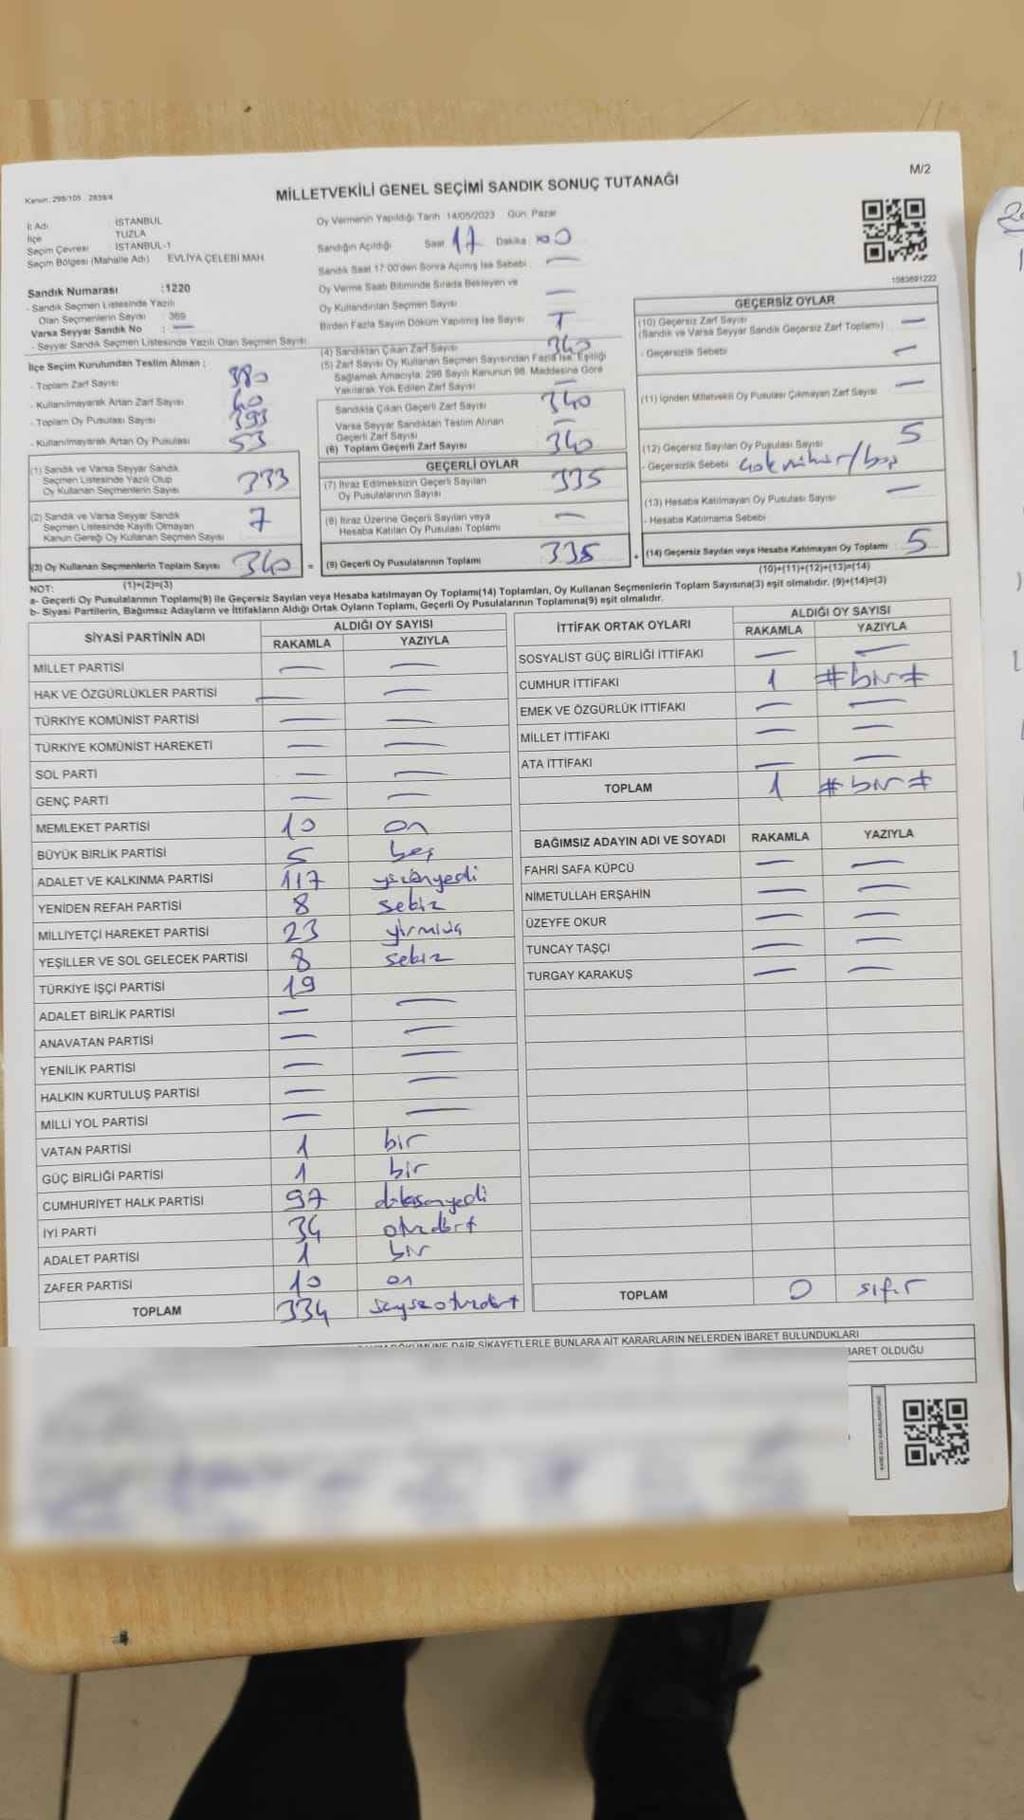 M/2
Kanun: 298/105 2839/4
MİLLETVEKİLİ GENEL SEÇİMİ SANDIK SONUÇ TUTANAĞI
İl Adı İSTANBUL
İlçe TUZLA
Seçim Çevresi İSTANBUL-1
Seçim Bölgesi (Mahalle Adı) EVLİYA ÇELEBİ MAH.
Sandık Numarası :1220
- Sandık Seçmen Listesinde Yazılı
Olan Seçmenlerin Sayısı 369
Varsa Seyyar Sandık No : —
- Seyyar Sandık Seçmen Listesinde Yazılı Olan Seçmen Sayısı
Oy Vermenin Yapıldığı Tarih 14/05/2023 Gün: Pazar
Sandığın Açıldığı Saat 17 Dakika
Sandık Saat 17:00'den Sonra Açılmış İse Sebebi : —
Oy Verme Saati Bitiminde Sırada Bekleyen ve
Oy Kullandırılan Seçmen Sayısı —
Birden Fazla Sayım Döküm Yapılmış İse Sayısı
1583691222
İlçe Seçim Kurulundan Teslim Alınan :
- Toplam Zarf Sayısı 380
- Kullanılmayarak Artan Zarf Sayısı 40
- Toplam Oy Pusulası Sayısı 393
- Kullanılmayarak Artan Oy Pusulası 53
(1) Sandık ve Varsa Seyyar Sandık
Seçmen Listesinde Yazılı Olup
Oy Kullanan Seçmenlerin Sayısı 333
(2) Sandık ve Varsa Seyyar Sandık
Seçmen Listesinde Kayıtlı Olmayan
Kanun Gereği Oy Kullanan Seçmen Sayısı 7
(3) Oy Kullanan Seçmenlerin Toplam Sayısı 340 =
(1)+(2)=(3)
(4) Sandıktan Çıkan Zarf Sayısı 340
(5) Zarf Sayısı Oy Kullanan Seçmen Sayısından Fazla İse, Eşitliği
Sağlamak Amacıyla; 298 Sayılı Kanunun 98. Maddesine Göre
Yakılarak Yok Edilen Zarf Sayısı —
Sandıkta Çıkan Geçerli Zarf Sayısı 340
Varsa Seyyar Sandıktan Teslim Alınan
Geçerli Zarf Sayısı —
(6) Toplam Geçerli Zarf Sayısı 340
GEÇERLİ OYLAR
(7) İtiraz Edilmeksizin Geçerli Sayılan
Oy Pusulalarının Sayısı 335
(8) İtiraz Üzerine Geçerli Sayılan veya
Hesaba Katılan Oy Pusulası Toplamı —
(9) Geçerli Oy Pusulalarının Toplamı 335 +
GEÇERSİZ OYLAR
(10) Geçersiz Zarf Sayısı —
(Sandık ve Varsa Seyyar Sandık Geçersiz Zarf Toplamı)
- Geçersizlik Sebebi —
(11) İçinden Milletvekili Oy Pusulası Çıkmayan Zarf Sayısı —
(12) Geçersiz Sayılan Oy Pusulası Sayısı 5
- Geçersizlik Sebebi çok mühür/boş
(13) Hesaba Katılmayan Oy Pusulası Sayısı —
- Hesaba Katılmama Sebebi
(14) Geçersiz Sayılan veya Hesaba Katılmayan Oy Toplamı 5
(10)+(11)+(12)+(13)=(14)
NOT:
a- Geçerli Oy Pusulalarının Toplamı(9) ile Geçersiz Sayılan veya Hesaba katılmayan Oy Toplamı(14) Toplamları, Oy Kullanan Seçmenlerin Toplam Sayısına(3) eşit olmalıdır. (9)+(14)=(3)
b- Siyasi Partilerin, Bağımsız Adayların ve İttifakların Aldığı Ortak Oyların Toplamı, Geçerli Oy Pusulalarının Toplamına(9) eşit olmalıdır.
SİYASİ PARTİNİN ADI ALDIĞI OY SAYISI
RAKAMLA YAZIYLA
MİLLET PARTİSİ — —
HAK VE ÖZGÜRLÜKLER PARTİSİ — —
TÜRKİYE KOMÜNİST PARTİSİ — —
TÜRKİYE KOMÜNİST HAREKETİ — —
SOL PARTİ — —
GENÇ PARTİ — —
MEMLEKET PARTİSİ 10 on
BÜYÜK BİRLİK PARTİSİ 5 beş
ADALET VE KALKINMA PARTİSİ 117 yüzonyedi
YENİDEN REFAH PARTİSİ 8 sekiz
MİLLİYETÇİ HAREKET PARTİSİ 23 yirmiüç
YEŞİLLER VE SOL GELECEK PARTİSİ 8 sekiz
TÜRKİYE İŞÇİ PARTİSİ 19
ADALET BİRLİK PARTİSİ — —
ANAVATAN PARTİSİ — —
YENİLİK PARTİSİ — —
HALKIN KURTULUŞ PARTİSİ — —
MİLLİ YOL PARTİSİ — —
VATAN PARTİSİ 1 bir
GÜÇ BİRLİĞİ PARTİSİ 1 bir
CUMHURİYET HALK PARTİSİ 97 doksanyedi
İYİ PARTİ 34 otuzdört
ADALET PARTİSİ 1 bir
ZAFER PARTİSİ 10 on
TOPLAM 334
İTTİFAK ORTAK OYLARI ALDIĞI OY SAYISI
RAKAMLA YAZIYLA
SOSYALİST GÜÇ BİRLİĞİ İTTİFAKI — —
CUMHUR İTTİFAKI 1 #bir#
EMEK VE ÖZGÜRLÜK İTTİFAKI — —
MİLLET İTTİFAKI — —
ATA İTTİFAKI — —
TOPLAM 1 #bir#
BAĞIMSIZ ADAYIN ADI VE SOYADI RAKAMLA YAZIYLA
FAHRİ SAFA KÜPCÜ — —
NİMETULLAH ERŞAHİN — —
ÜZEYFE OKUR — —
TUNCAY TAŞÇI — —
TURGAY KARAKUŞ — —
TOPLAM 0 sıfır
DAİR ŞİKAYETLERLE BUNLARA AİT KARARLARIN NELERDEN İBARET BULUNDUKLARI
OLDUĞU